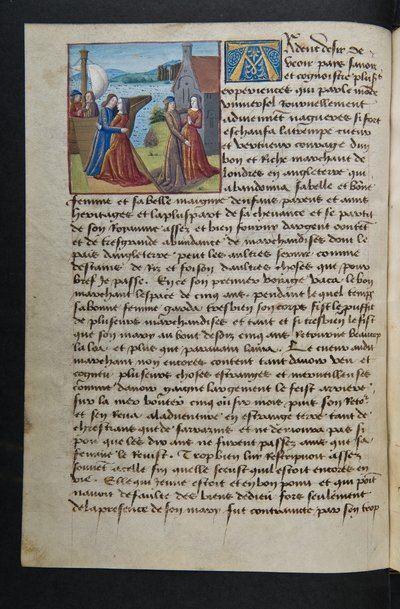 Ardent desir de
veoir pays savoir
et cognoistre plus's
experiences qui par le monde
universel journellement
adviennent nagueres si fort
eschaufa latrempe cueur
et vertueux courage dun
bon et riche marchant de
londres en angleterre qui
abandonna sa belle et bonne
femme et sa belle maignie denfans parens et amis
heritages et la pluspart de sa chevance et se partit
de son royaume assez et bien fourny dargent content
et de tresgrande abundance de marchandises dont le
pais dangleterre peut les aultres servir comme
destains de riz et foison daultres choses que pour
bref je passe En ce son premier voyage vaca le bon
marchant lespace de cinq ans pendant le quel temps
sa bonne femme garda tresbien son corps fist le prouffit
de pluseurs marchandises et tant et si tresbien le fist
que son mary au bout desdiz cinq ans retourne beaucop
la loa et plus que paravant lama Le cueur audit
marchant non encores content tant davoir veu et
cogneu pluseurs choses estranges et merveilleuses
comme davoir gaigne largement le feist arriere
sur la mer bouter cinq ou six mois puis son retor
et sen reva a ladventure en estrange terre tant de
chrestians que de sarrazins et ne demoura pas si
pou que les dix ans ne furent passez ains que sa
femme le revist Trop bien luy rescripvoit assez
souvent a celle fin quelle sceust quil estoit encores en
vie Elle qui jeune estoit et en bon point et qui point
navoit de faulte des biens de dieu fors seulement
de la presence de son mary fut contrainte par son trop